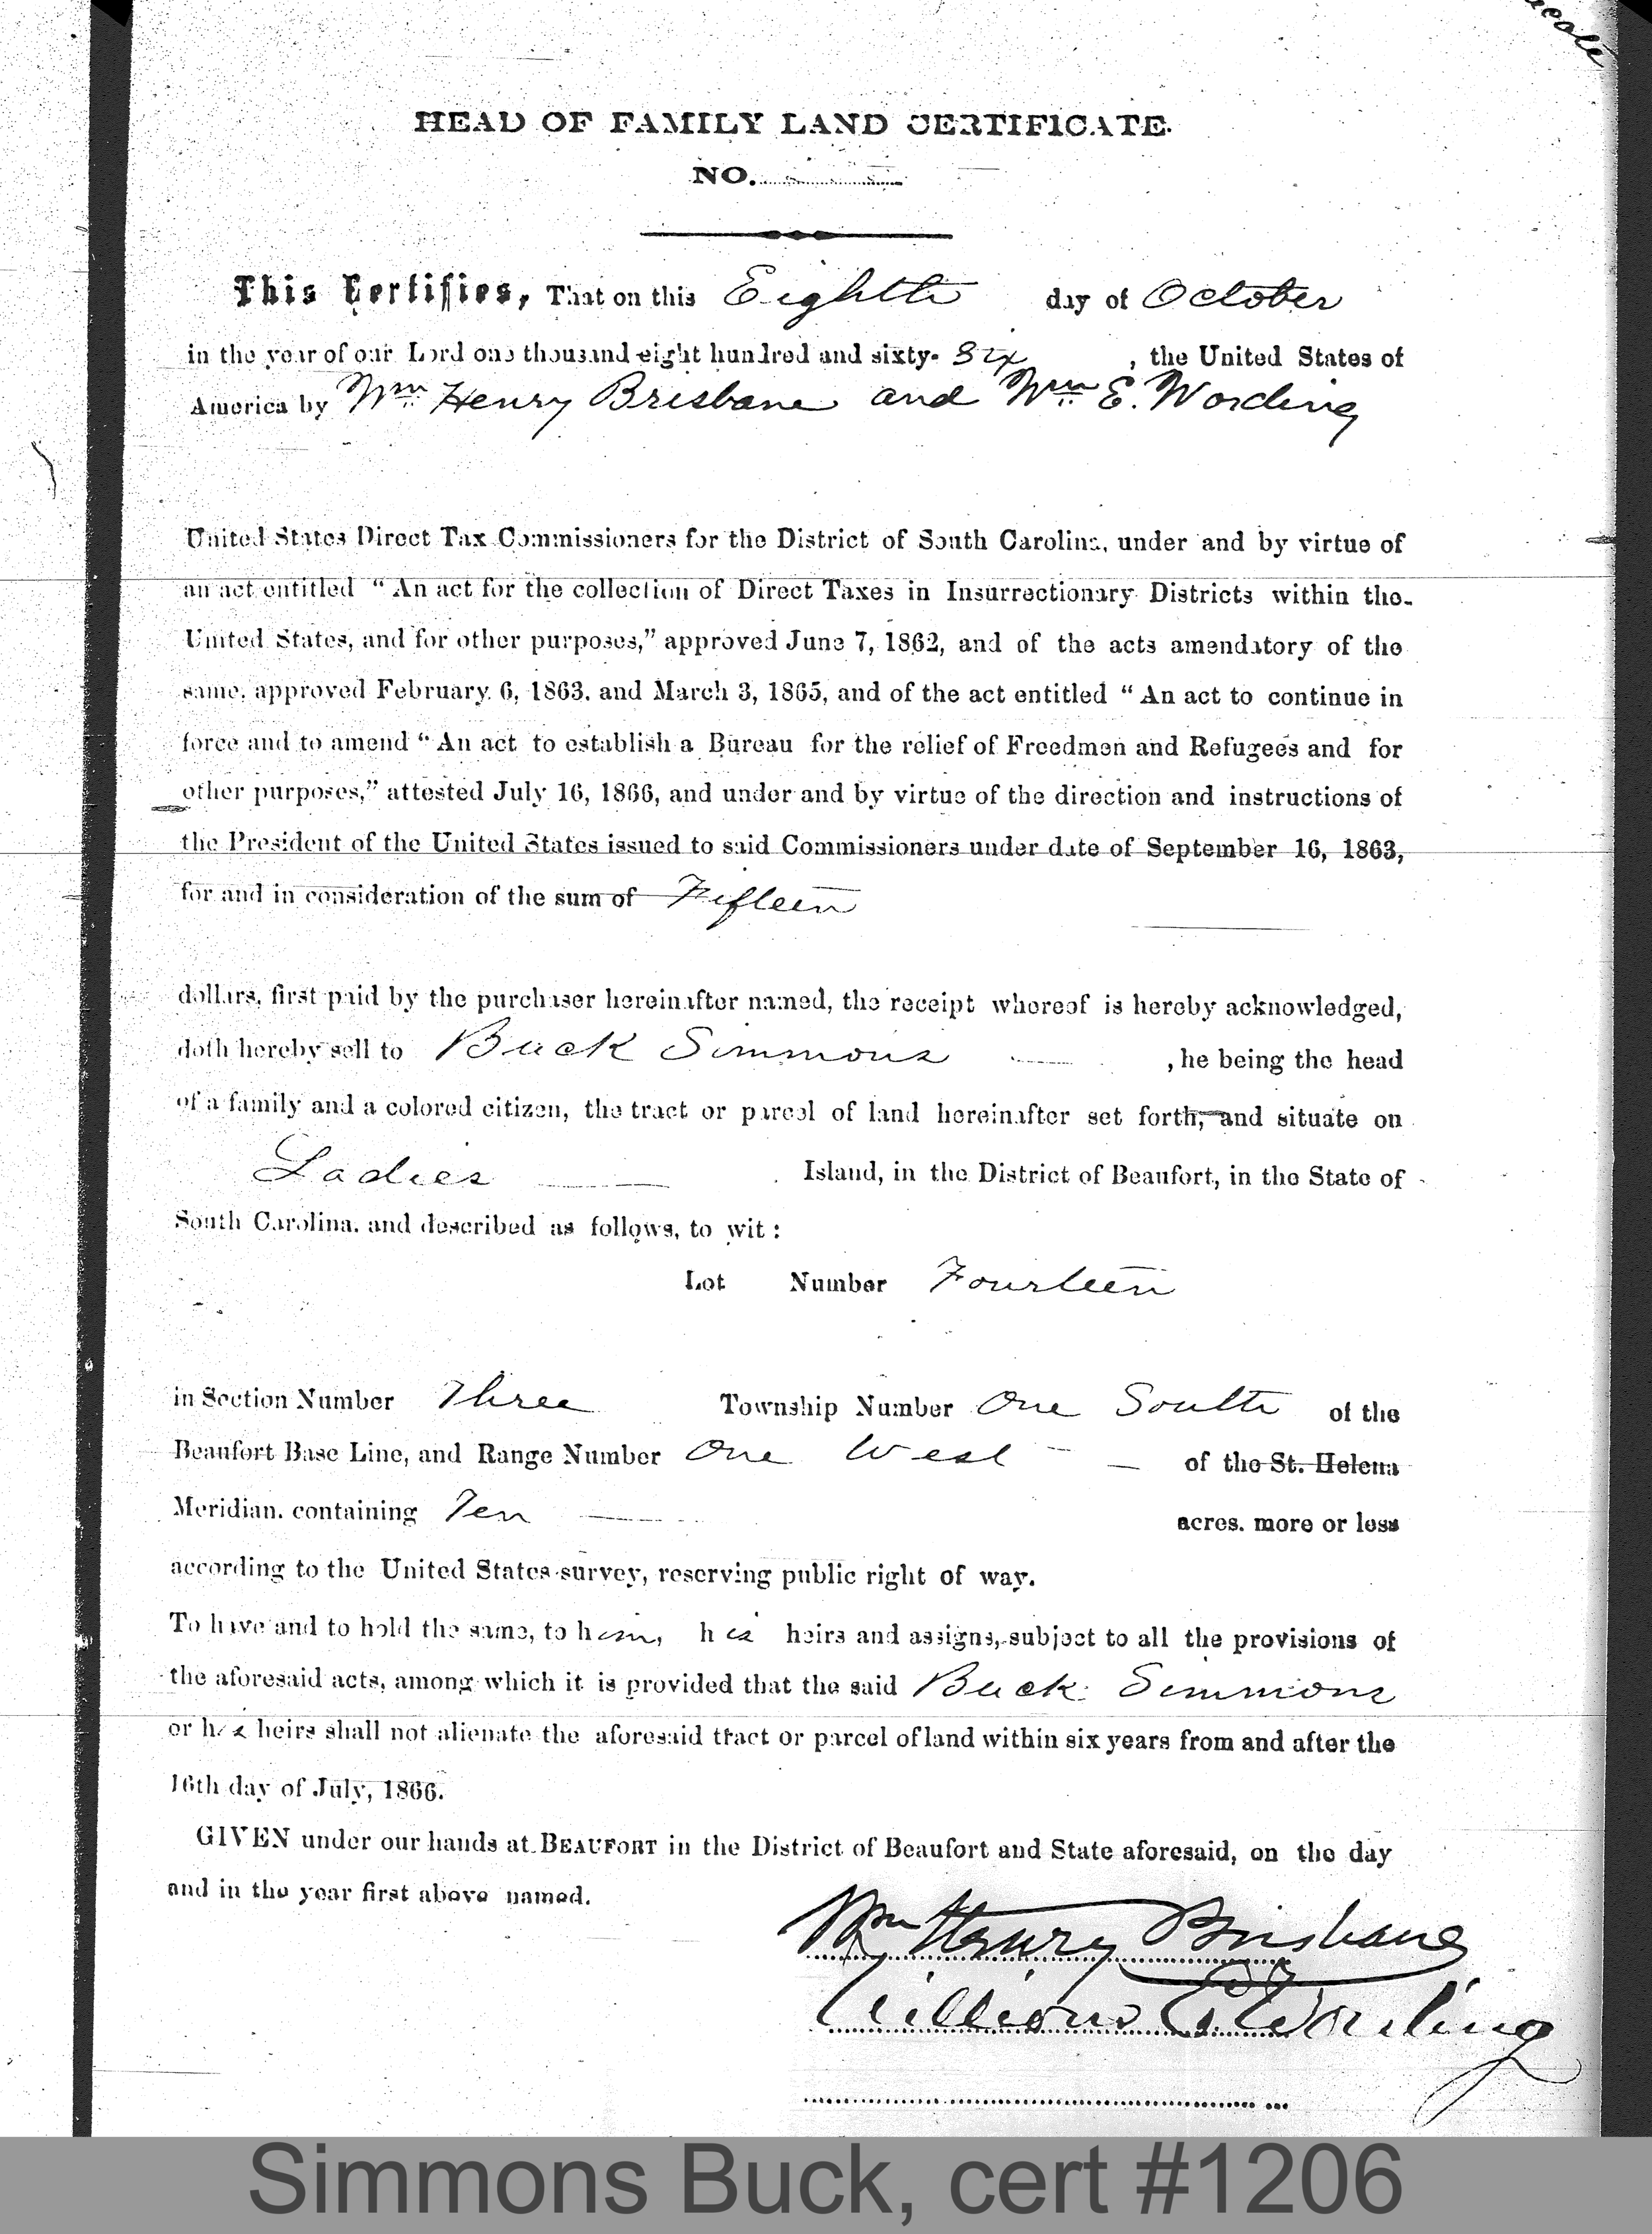 HEAD OF FAMILY LAND CERTIFICATE.
NO.
This Certifies, That on this Eighth day of October
in the year of our Lord one thousand eight hundred and sixty-six, the United States of
America by Wm Henry Brisbane and Wm E. Wording
United States Direct Tax Commissioners for the District of South Carolina, under and by virtue of
an act entitled "An act for the collection of Direct Taxes in Insurrectionary Districts within the
United States, and for other purposes," approved June 7, 1862, and of the acts amendatory of the
same, approved February 6, 1863, and March 3, 1865, and of the act entitled "An act to continue in
force and to amend "An act to establish a Bureau for the relief of Freedmen and Refugees and for
other purposes," attested July 16, 1866, and under and by virtue of the direction and instructions of
the President of the United States issued to said Commissioners under date of September 16, 1863,
for and in consideration of the sum of Fifteen
dollars, first paid by the purchaser hereinafter named, the receipt whereof is hereby acknowledged,
doth hereby sell to Buck Simmons , he being the head
of a family and a colored citizen, the tract or parcel of land hereinafter set forth, and situate on
Ladies Island, in the District of Beaufort, in the State of
South Carolina, and described as follows, to wit:
Lot Number Fourteen
in Section Number Three Township Number One South of the
Beaufort Base Line, and Range Number One West of the St. Helena
Meridian, containing Ten acres, more or less
according to the United States survey, reserving public right of way.
To have and to hold the same, to him, his heirs and assigns, subject to all the provisions of
the aforesaid acts, among which it is provided that the said Buck Simmons
or his heirs shall not alienate the aforesaid tract or parcel of land within six years from and after the
16th day of July, 1866.
GIVEN under our hands at BEAUFORT in the District of Beaufort and State aforesaid, on the day
and in the year first above named.
Wm Henry Brisbane
William E. Wording
Simmons Buck, cert #1206